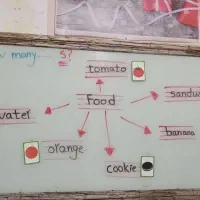 many... s?
tomato
Food
water
banana
orange
cookie